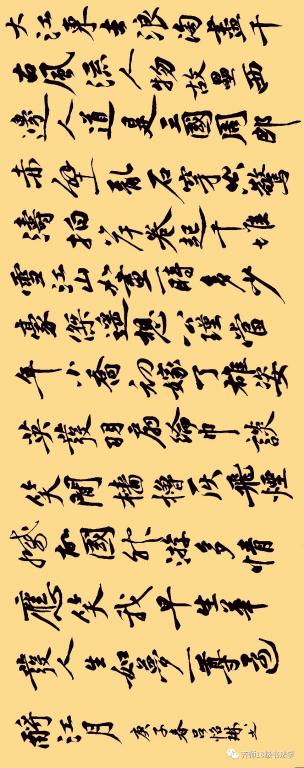 大江東去浪淘盡千
古風流人物故壘西
邊人道是三國周郎
赤壁亂石穿空驚
濤拍岸卷起千堆
雪江山如畫一時多少
豪傑遙想公瑾當
年小喬初嫁了雄姿
英發羽扇綸巾談
笑間檣櫓灰飛煙
滅故國神游多情
應笑我早生華
發人生如夢一尊還
酹江月 庚子春
齐师18级书法学